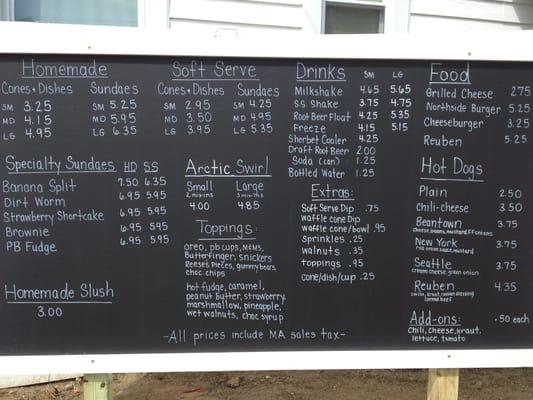 Homemade
Cones + Dishes Sundaes
SM 3.25 SM 5.25
MD 4.15 MD 5.95
LG 4.95 LG 6.35
Specialty Sundaes HD SS
Banana Split 7.50 6.35
Dirt Worm 6.95 5.95
Strawberry Shortcake 6.95 5.95
Brownie 6.95 5.95
PB Fudge 6.95 5.95
Homemade Slush
3.00
Soft Serve
Cones + Dishes Sundaes
SM 2.95 SM 4.25
MD 3.50 MD 4.95
LG 3.95 LG 5.35
Arctic Swirl
Small Large
2 mix-ins 3 mix-ins
4.00 4.85
Toppings:
oreo, pb cups, M&Ms,
Butterfinger, snickers
Reese's Pieces, gummy bears
choc. chips
hot fudge, caramel,
peanut butter, strawberry,
marshmallow, pineapple,
wet walnuts, choc syrup
Drinks SM LG
Milkshake 4.65 5.65
SS Shake 3.75 4.75
Root Beer Float 4.25 5.35
Freeze 4.15 5.15
Sherbet Cooler 4.25
Draft Root Beer 2.00
Soda (can) 1.25
Bottled Water 1.25
Extras:
Soft Serve Dip .75
waffle cone Dip
waffle cone/bowl .95
sprinkles .25
walnuts .35
toppings .95
cone/dish/cup .25
Food
Grilled Cheese 2.75
Northside Burger 5.25
Cheeseburger 3.25
Reuben 5.25
Hot Dogs
Plain 2.50
Chili-cheese 3.50
Beantown 3.75
cheese, beans, mustard, FF onions
New York 3.75
red onion sauce, mustard
Seattle 3.75
cream cheese, green onion
Reuben 4.35
swiss, kraut, russian dressing
corned beef
Add-ons: .50 each
chili, cheese, kraut,
lettuce, tomato
~All prices include MA sales tax~